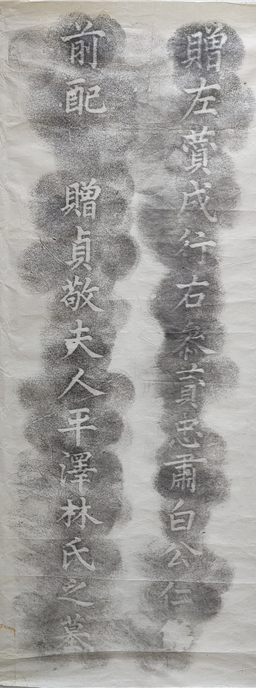 贈左贊成行右叅賛忠肅白公仁
前配 贈貞敬夫人平澤林氏之墓